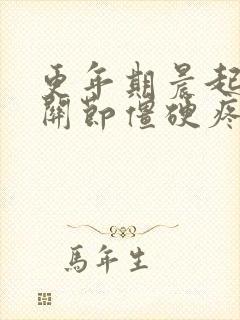 更年期晨起
關節僵硬疼
馬年生